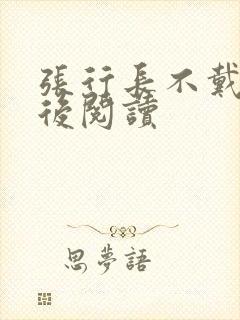 張行長不戴
後閱讀
思夢語